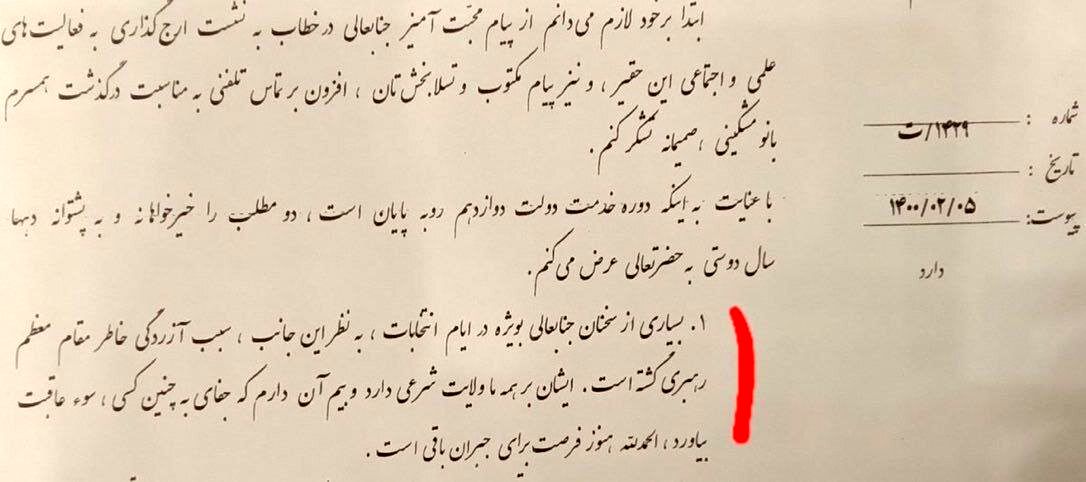 ابتدا بر خود لازم می‌دانم از پیام محبت آمیز جنابعالی در خطاب به نشست ارج گذاری به فعالیت‌های
علمی و اجتماعی این حقیر، و نیز پیام مکتوب و تسلابخش‌تان، افزون بر تماس تلفنی به مناسبت درگذشت همسرم
بانو مشکینی، صمیمانه تشکر کنم.
با عنایت به اینکه دوره خدمت دولت دوازدهم رو به پایان است، دو مطلب را خیرخواهانه و به پشتوانه دهها
سال دوستی به حضرتعالی عرض می‌کنم.
۱. بسیاری از سخنان جنابعالی بویژه در ایام انتخابات، به نظر این جانب، سبب آزردگی خاطر مقام معظم
رهبری گشته است. ایشان بر همه ما ولایت شرعی دارد و بیم آن دارم که جفای به چنین کسی، سوء عاقبت
بیاورد، الحمدلله هنوز فرصت برای جبران باقی است.
شماره :
۱۴۲۹/ت
تاریخ :
۱۴۰۰/۰۲/۰۵
پیوست:
دارد